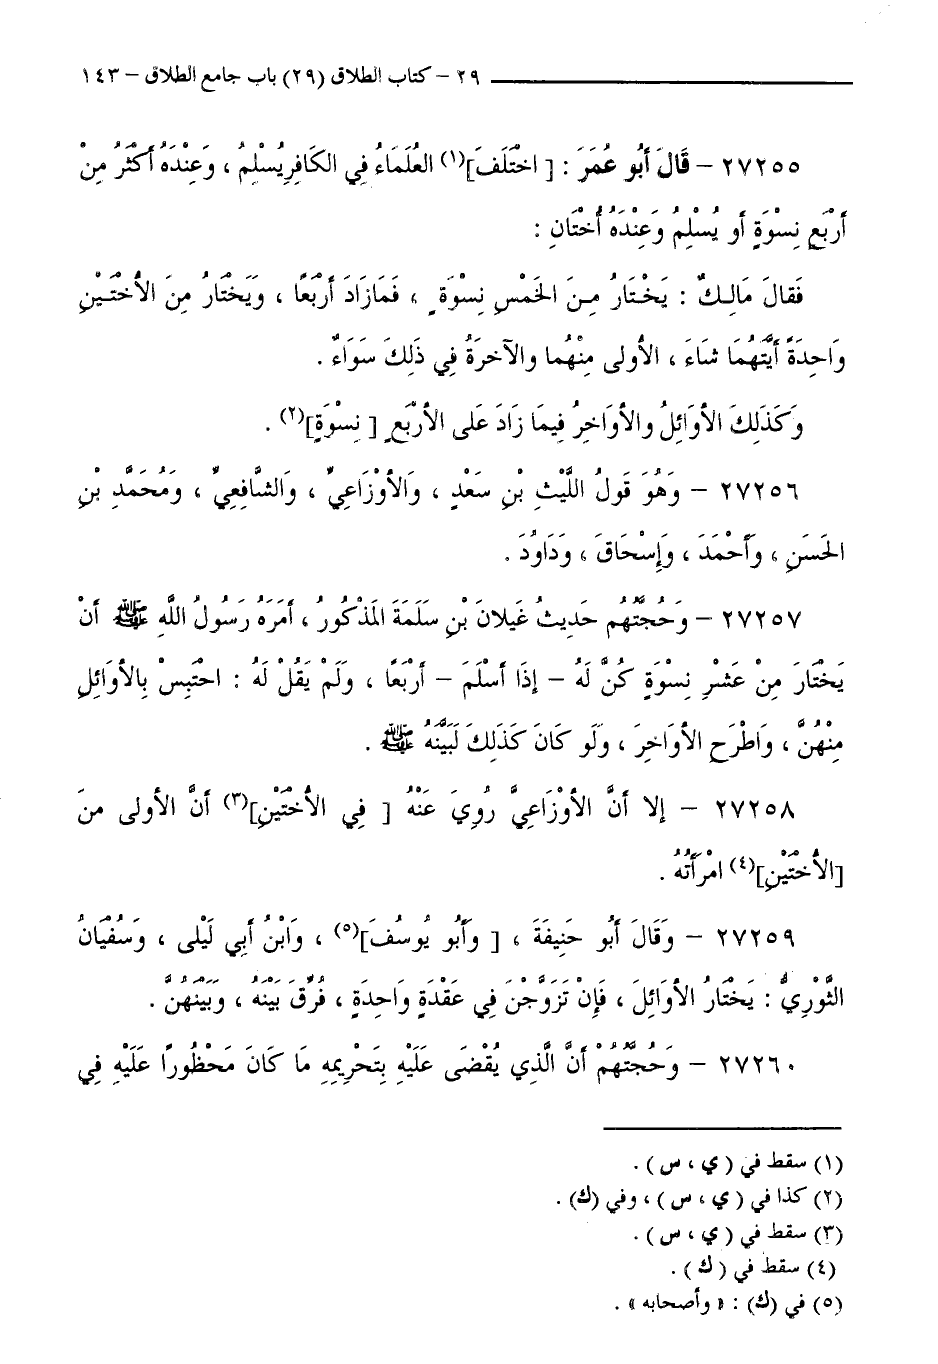 ٢٩ – كتاب الطلاق (٢٩) باب جامع الطلاق – ١٤٣
٢٧٢٥٥ – قَالَ أَبُو عُمَرَ : [ اخْتَلَفَ](١) العُلَمَاءُ فِي الكَافِرِ يُسْلِمُ ، وَعِنْدَهُ أَكْثَرُ مِنْ
أَرْبَعِ نِسْوَةٍ أَو يُسْلِمُ وَعِنْدَهُ أُخْتَانِ :
فَقَالَ مَالِكٌ : يَخْتَارُ مِنَ الخَمْسِ نِسْوَةٍ ، فَمَازَادَ أَرْبَعًا ، وَيَخْتَارُ مِنَ الأُخْتَيْنِ
وَاحِدَةً أَيَّتَهُمَا شَاءَ ، الأُولى مِنْهُما والآخرَةُ فِي ذَلِكَ سَوَاءٌ .
وَكَذَلِكَ الأَوَائِلُ والأَوَاخِرُ فِيمَا زَادَ عَلى الأَرْبَعِ [ نِسْوَةٍ](٢) .
٢٧٢٥٦ – وَهُوَ قَولُ اللَّيْثِ بْنِ سَعْدٍ ، وَالأَوْزَاعِيِّ ، وَالشَّافِعِيِّ ، وَمُحَمَّدِ بْنِ
الحَسَنِ ، وَأَحْمَدَ ، وَإِسْحَاقَ ، وَدَاوُدَ .
٢٧٢٥٧ – وَحُجَّتُهُم حَدِيثُ غَيلانَ بْنِ سَلَمَةَ المَذْكُورُ ، أَمَرَهُ رَسُولُ اللَّهِ ﷺ أَنْ
يَخْتَارَ مِنْ عَشْرِ نِسْوَةٍ كُنَّ لَهُ – إِذَا أَسْلَمَ – أَرْبَعًا ، وَلَمْ يَقُلْ لَهُ : احْتَبِسْ بِالأَوَائِلِ
مِنْهُنَّ ، وَاطْرَحِ الأَوَاخِرَ ، وَلَو كَانَ كَذَلِكَ لَبَيَّنَهُ ﷺ .
٢٧٢٥٨ – إِلا أَنَّ الأَوْزَاعِيَّ رُوِيَ عَنْهُ [ فِي الأُخْتَيْنِ](٣) أَنَّ الأُولى منَ
[الأُخْتَيْنِ](٤) امْرَأَتُهُ .
٢٧٢٥٩ – وَقَالَ أَبُو حَنِيفَةَ ، [ وَأَبُو يُوسُفَ](٥) ، وَابْنُ أَبِي لَيْلى ، وَسُفْيَانُ
الثَّوْرِيُّ : يَخْتَارُ الأَوَائِلَ ، فَإِنْ تَزَوَّجْنَ فِي عَقْدَةٍ وَاحِدَةٍ ، فُرِّقَ بَيْنَهُ ، وَبَيْنَهُنَّ .
٢٧٢٦٠ – وَحُجَّتُهُمْ أَنَّ الَّذِي يُقْضَى عَلَيْهِ بِتَحْرِيمِهِ مَا كَانَ مَحْظُورًا عَلَيْهِ فِي
(١) سقط في ( ي ، س ) .
(٢) كذا في ( ي ، س ) ، وفي (ك) .
(٣) سقط في ( ي ، س ) .
(٤) سقط في ( ك ) .
(٥) في (ك) : « وأصحابه » .